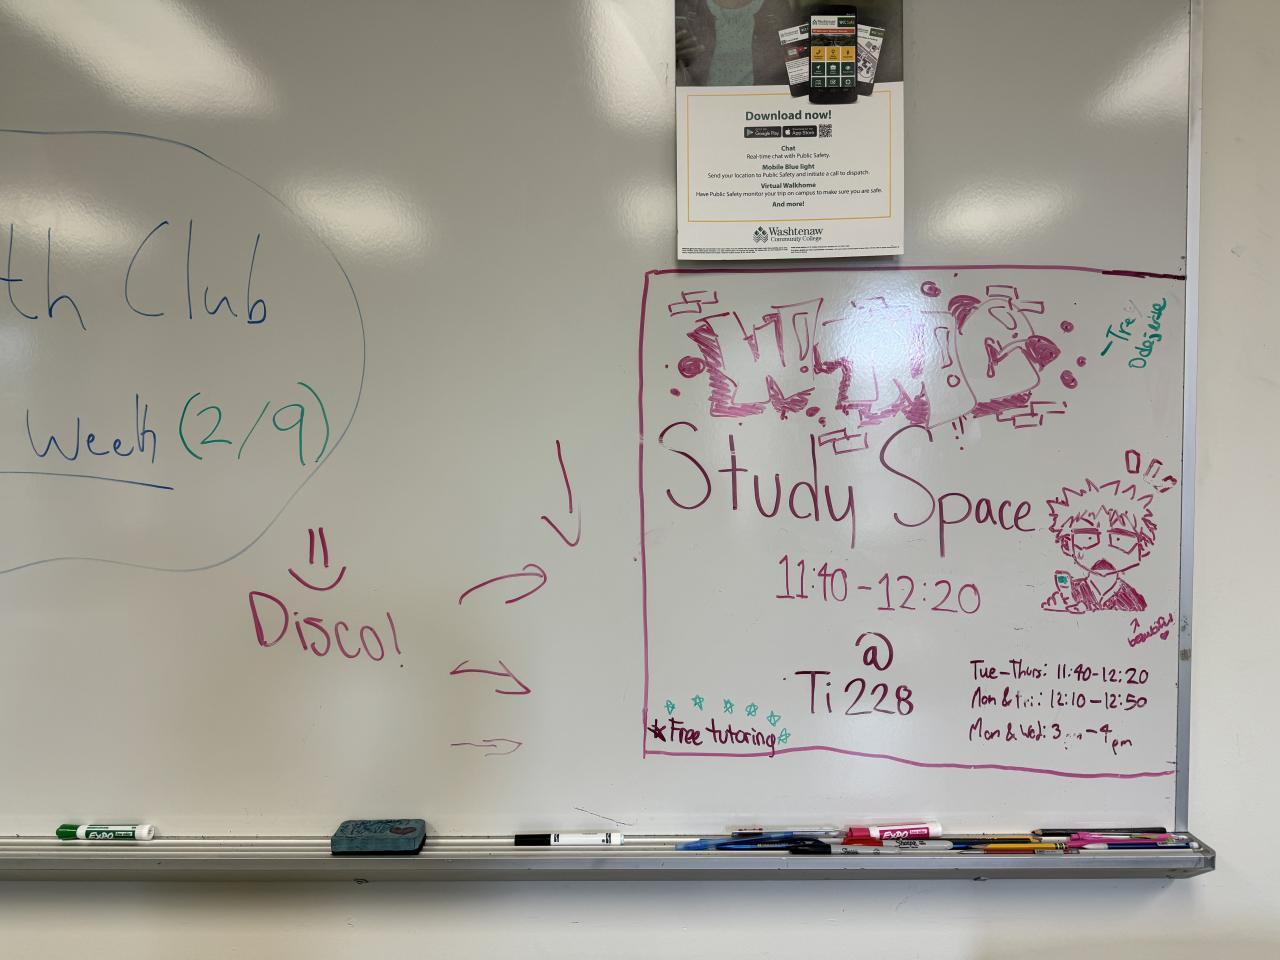 th Club
Week (2/9)
Disco!
Download now!
Google Play
App Store
Chat
Real-time chat with Public Safety.
Mobile Blue light
Send your location to Public Safety and initiate a call to dispatch.
Virtual Walkhome
Have Public Safety monitor your trip on campus to make sure you are safe.
And more!
Washtenaw
Community College
Study Space
11:40-12:20
@
Ti 228
Tue-Thurs: 11:40-12:20
Mon & Fri: 12:10-12:50
Mon & Wed: 3 - 4 pm
★Free tutoring
beautiful
EXPO
EXPO
Sharpie